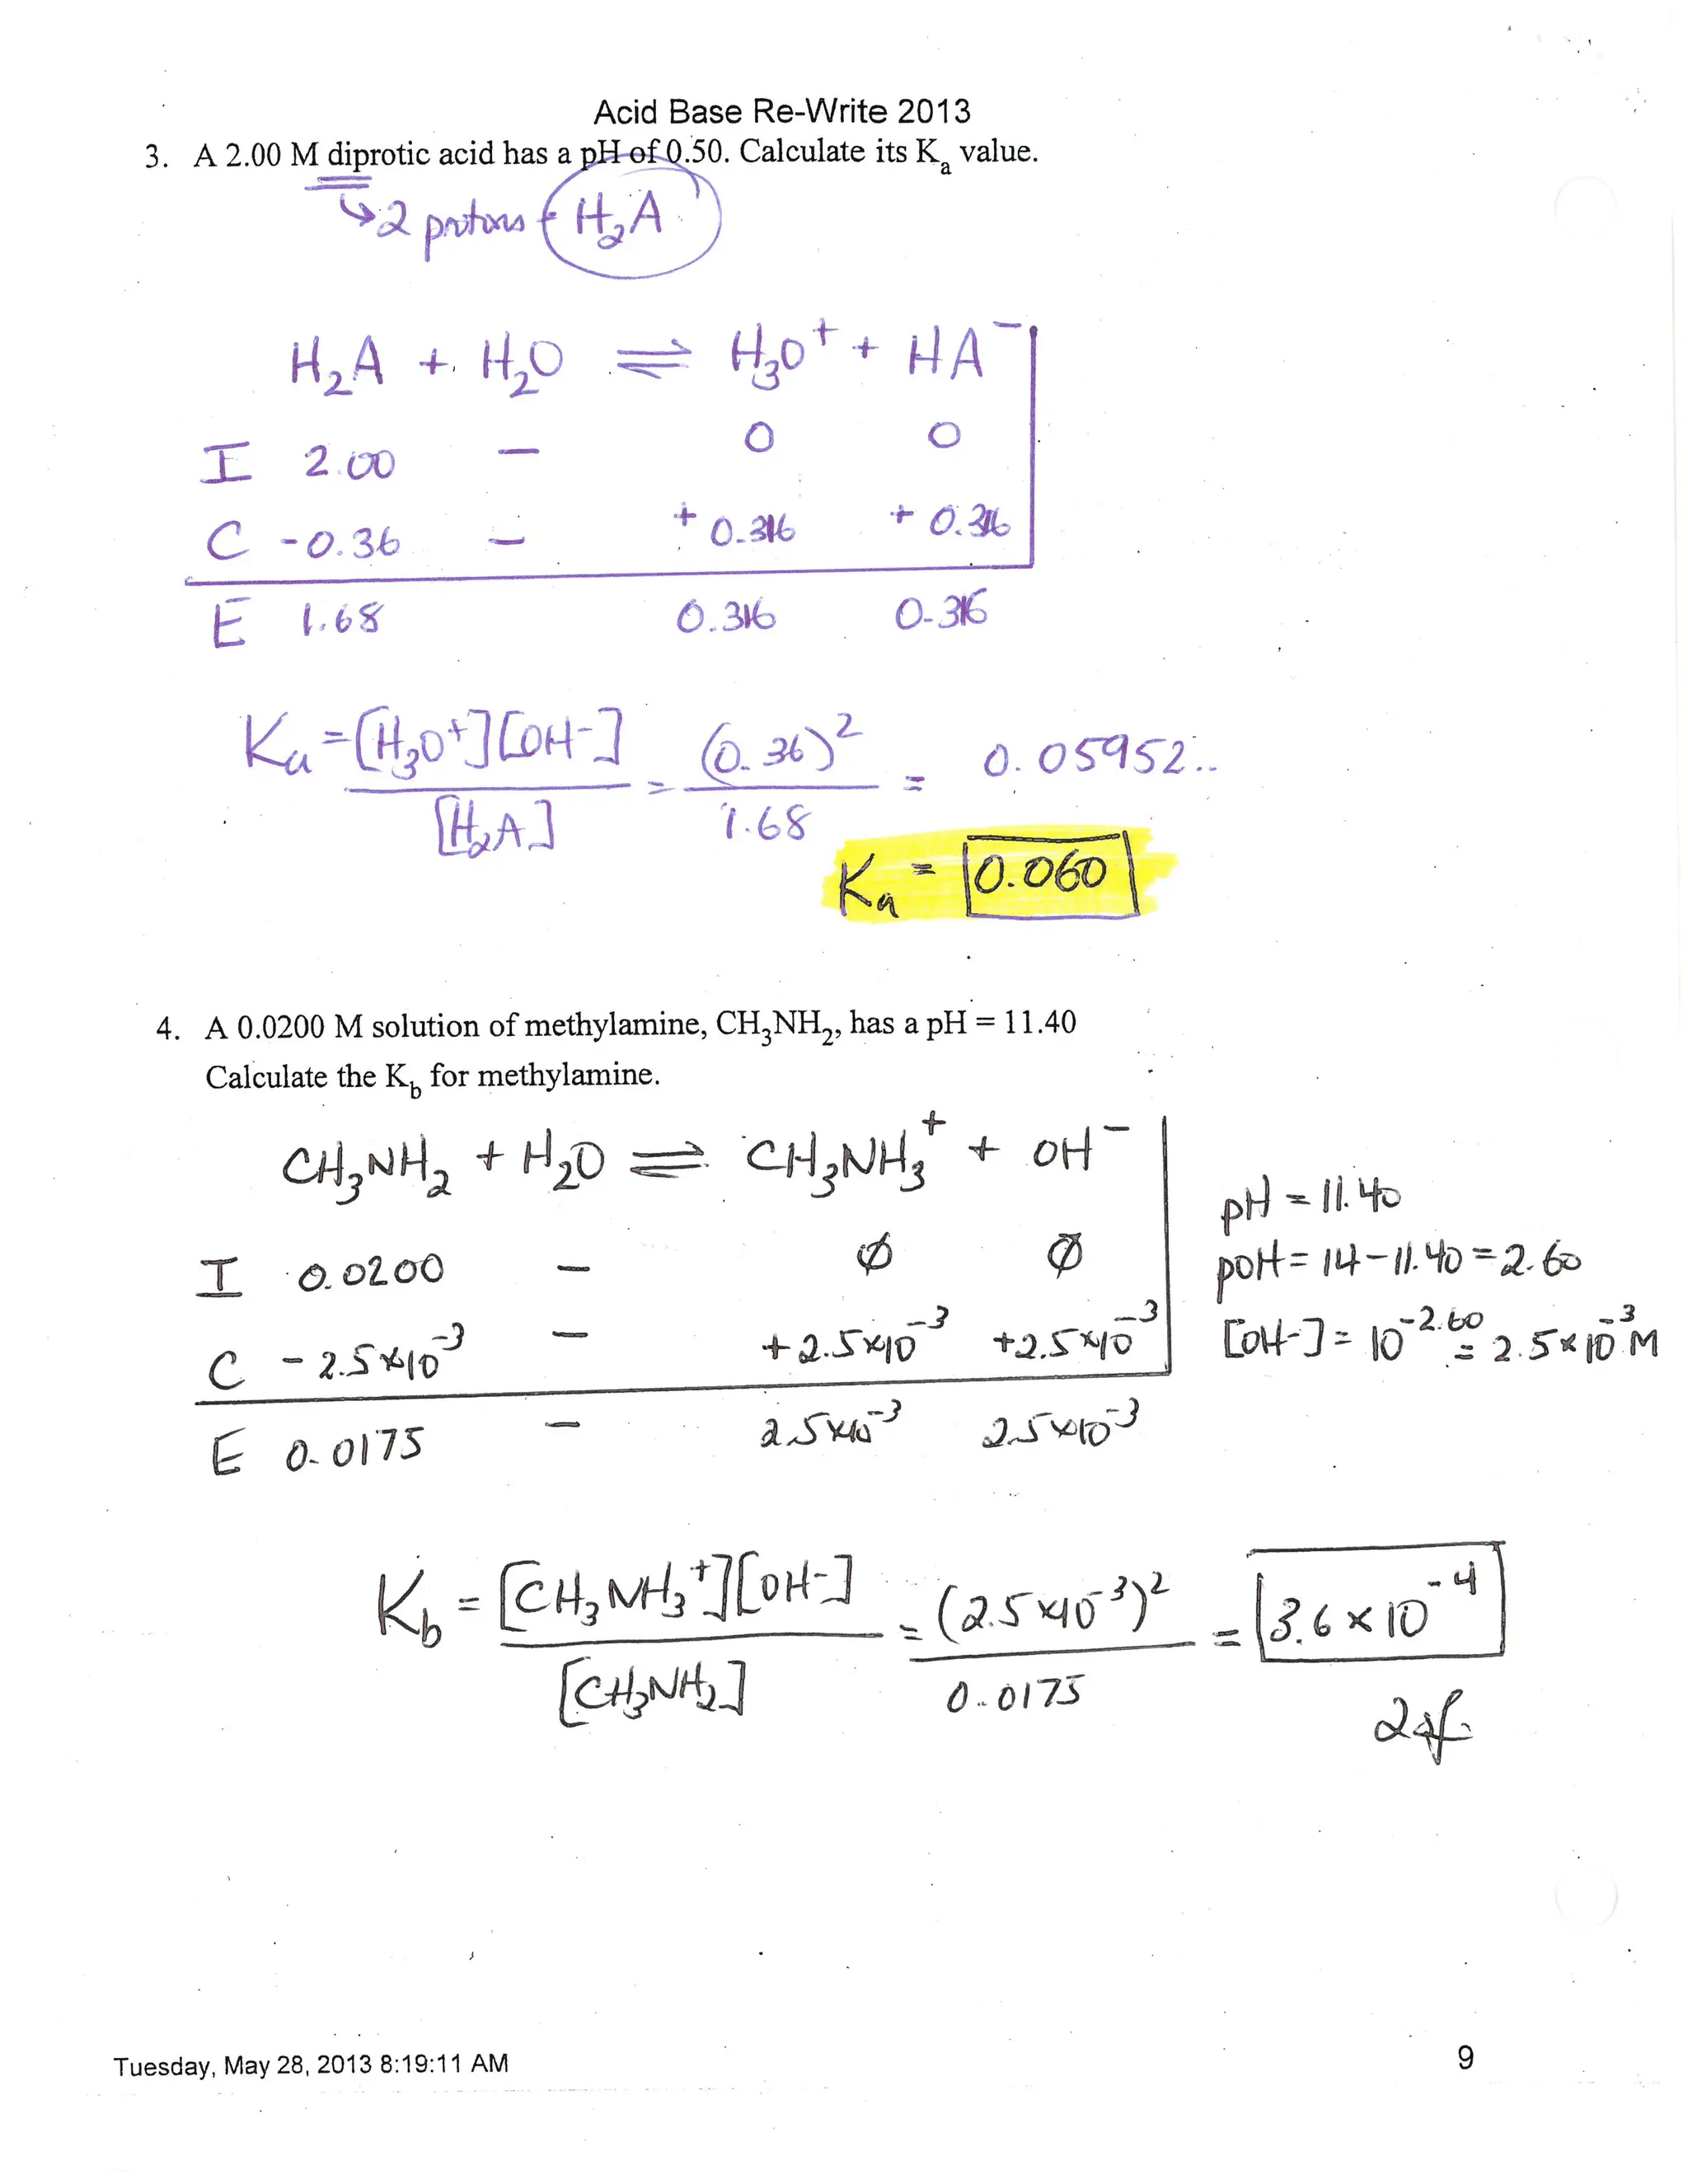 Acid Base Re-Write 2013
3. A 2.00 M diprotic acid has a pH of 0.50. Calculate its Kₐ value.
↳ 2 protons H₂A
H₂A + H₂O ⇌ H₃O⁺ + HA⁻
I 2.00 – 0 0
C -0.36 – + 0.316 + 0.316
E 1.68 0.316 0.316
Ka = [H₃O⁺][OH⁻] / [H₂A] = (0.36)² / 1.68 = 0.05952..
Ka = 0.060
4. A 0.0200 M solution of methylamine, CH₃NH₂, has a pH = 11.40
Calculate the K_b for methylamine.
CH₃NH₂ + H₂O ⇌ CH₃NH₃⁺ + OH⁻
pH = 11.40
I 0.0200 – ∅ ∅
pOH = 14 - 11.40 = 2.60
C - 2.5x10⁻³ – + 2.5x10⁻³ +2.5x10⁻³
[OH-] = 10⁻²·⁶⁰ = 2.5 x 10⁻³ M
E 0.0175 – 2.5x10⁻³ 2.5x10⁻³
K_b = [CH₃NH₃⁺][OH-] / [CH₃NH₂] = (2.5x10⁻³)² / 0.0175 = 3.6 x 10⁻⁴
2sf
Tuesday, May 28, 2013 8:19:11 AM
9